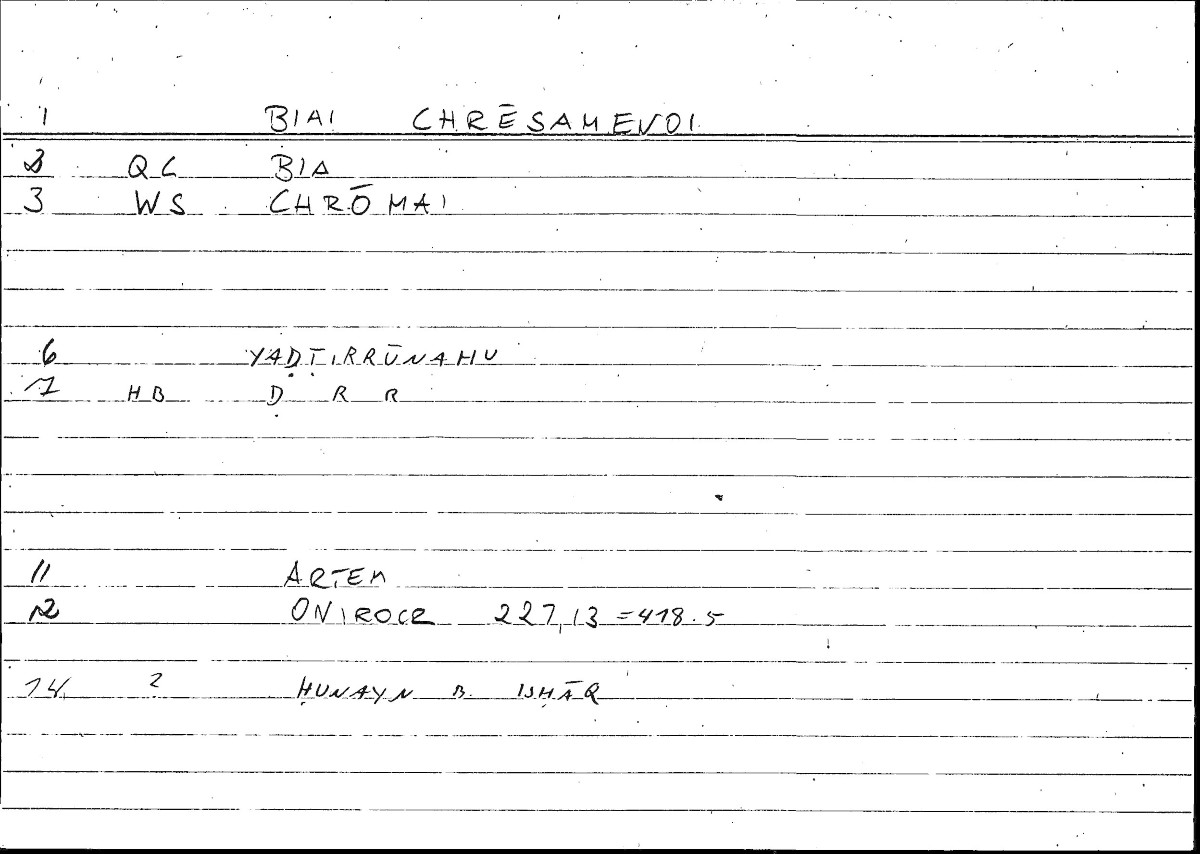 1 BIAI CHRĒSAMENOI
2 QC BIA
3 WS CHRŌMAI
6 YAḌṬIRRŪNAHU
7 HB Ḍ R R
11 ARTEM
12 ONIROCR 227,13 = 418.5
14 2 ḤUNAYN B. ISḤĀQ